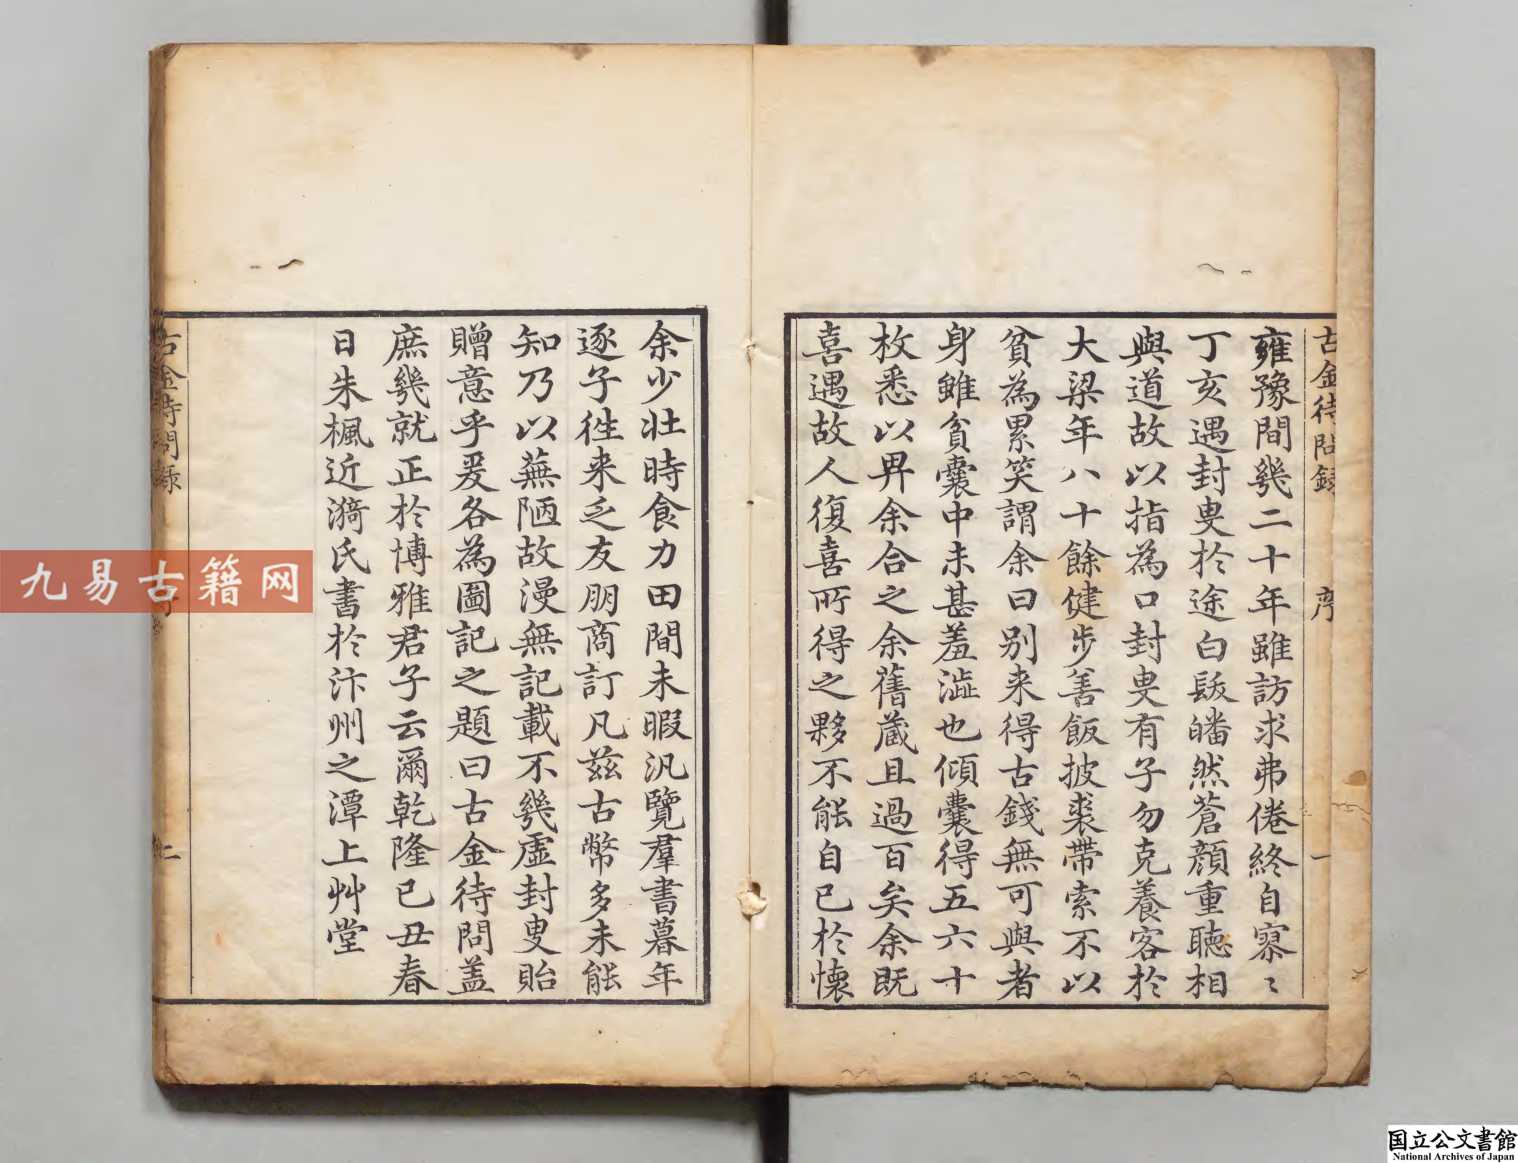 古金待問錄 序 一
雍豫間幾二十年雖訪求弗倦終自寥〻
丁亥遇封叟於途白䰄皤然蒼顔重聴相
與道故以指為口封叟有子勿克養客於
大梁年八十餘健步善飯披裘帶索不以
貧為累笑謂余曰别来得古錢無可與者
身雖貧囊中未甚羞澁也傾囊得五六十
枚悉以畀余合之余舊蔵且過百矣余既
喜遇故人復喜所得之夥不能自已於懷
余少壯時食力田間未暇汎覽羣書暮年
逐子徃来乏友朋商訂凡兹古幣多未能
知乃以蕪陋故漫無記載不幾虛封叟貽
贈意乎爰各為圖記之題曰古金待問盖
庶幾就正於博雅君子云爾乾隆已丑春
日朱楓近漪氏書於汴州之潭上艸堂
古金待問錄
二
九易古籍网
国立公文書館
National Archives of Japan